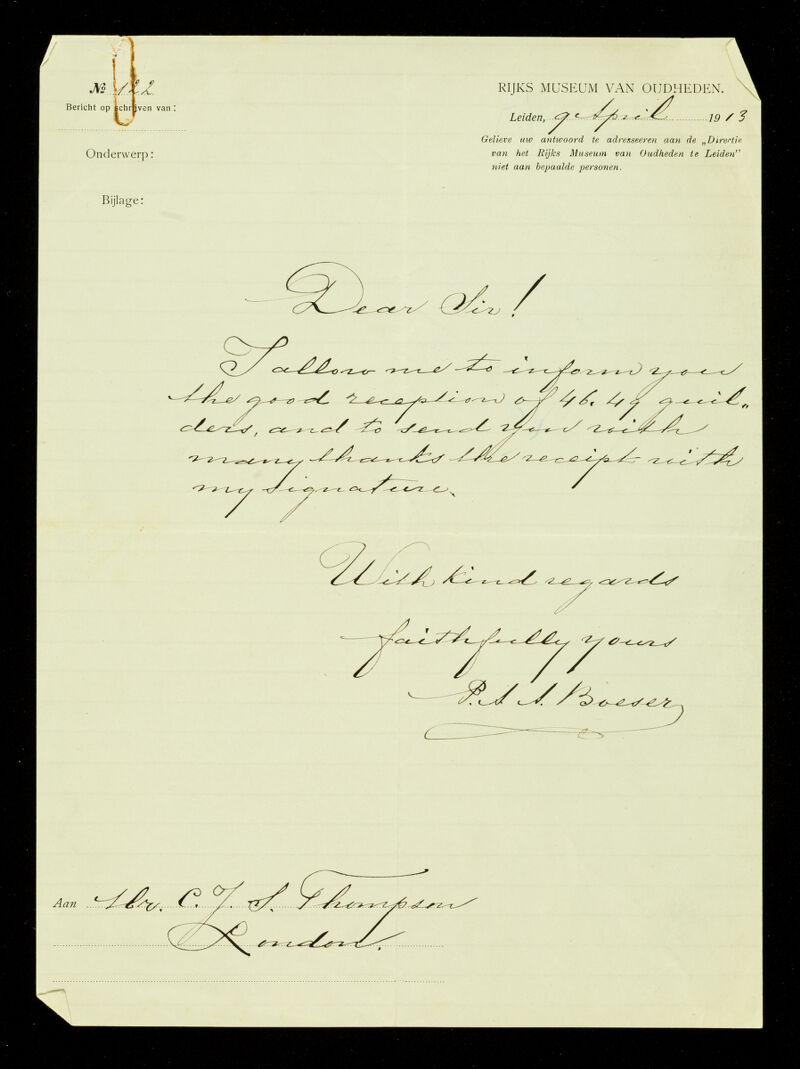 № 122
Bericht op schrijven van:
Onderwerp:
Bijlage:
RIJKS MUSEUM VAN OUDHEDEN.
Leiden, 9 April 1913
Gelieve uw antwoord te adresseeren aan de „Directie
van het Rijks Museum van Oudheden te Leiden”
niet aan bepaalde personen.
Dear Sir!
I allow me to inform you
the good reception of 46.49 guil„
ders, and to send you with
many thanks the receipt with
my signature.
With kind regards
faithfully yours
P. A. A. Boeser
Aan Mr. C. J. S. Thompson
London.